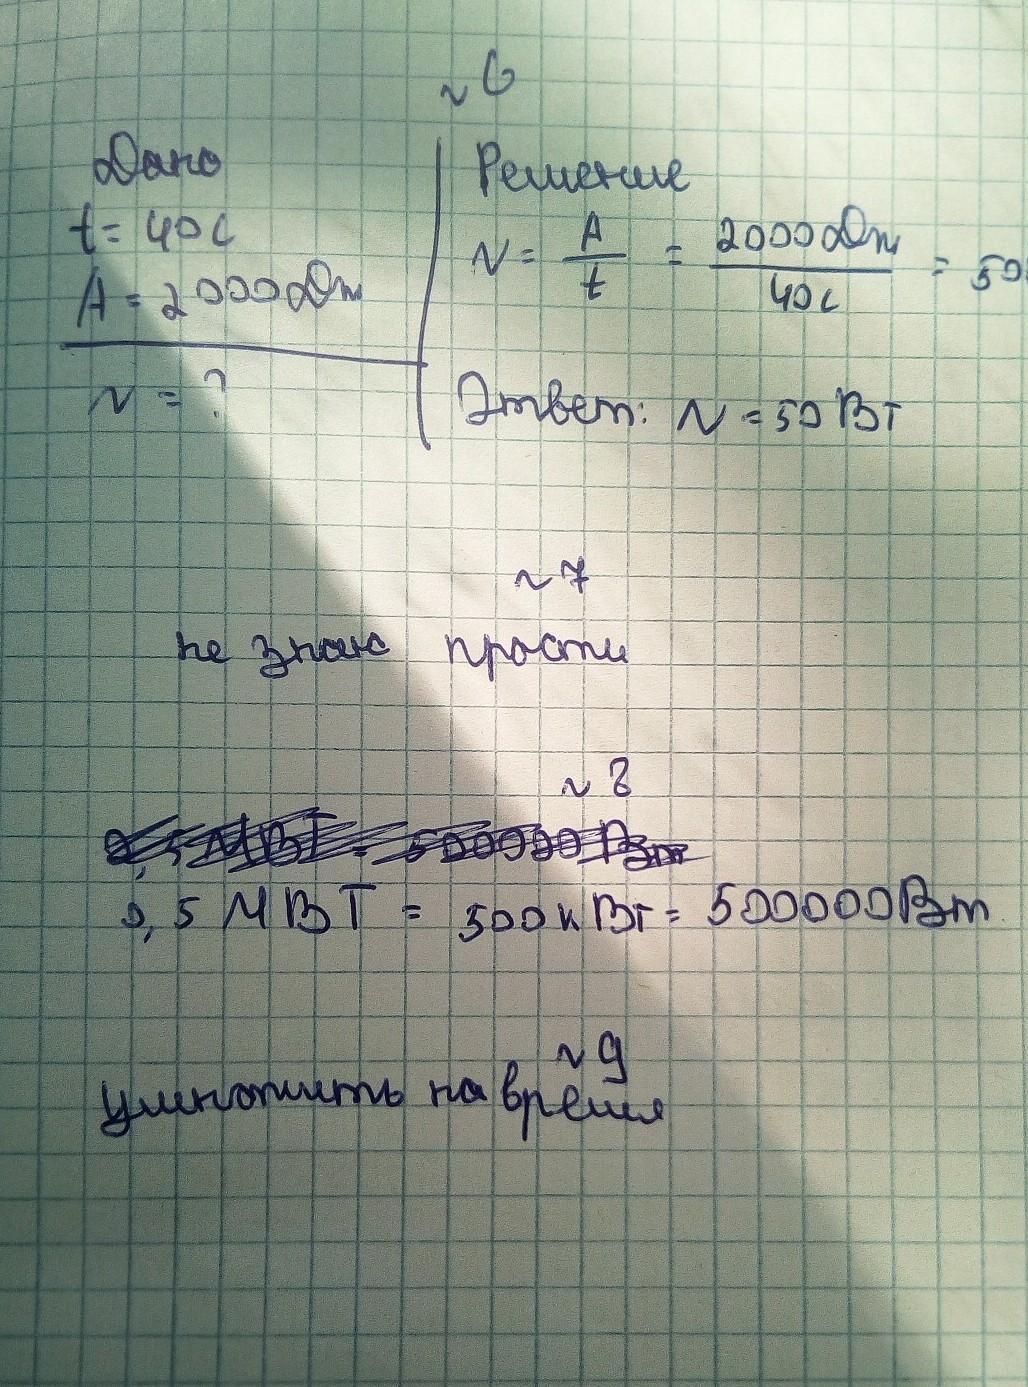 ~ 6
Дано
t = 40 с
A = 2000 Дж
N = ?
Решение
N = A/t = 2000 Дж / 40 с = 50
Ответ: N = 50 Вт
~ 7
не знаю прости
~ 8
0,5 МВТ = 500000 Вт
0,5 МВТ = 500 кВт = 500000 Вт
~ 9
умножить на время